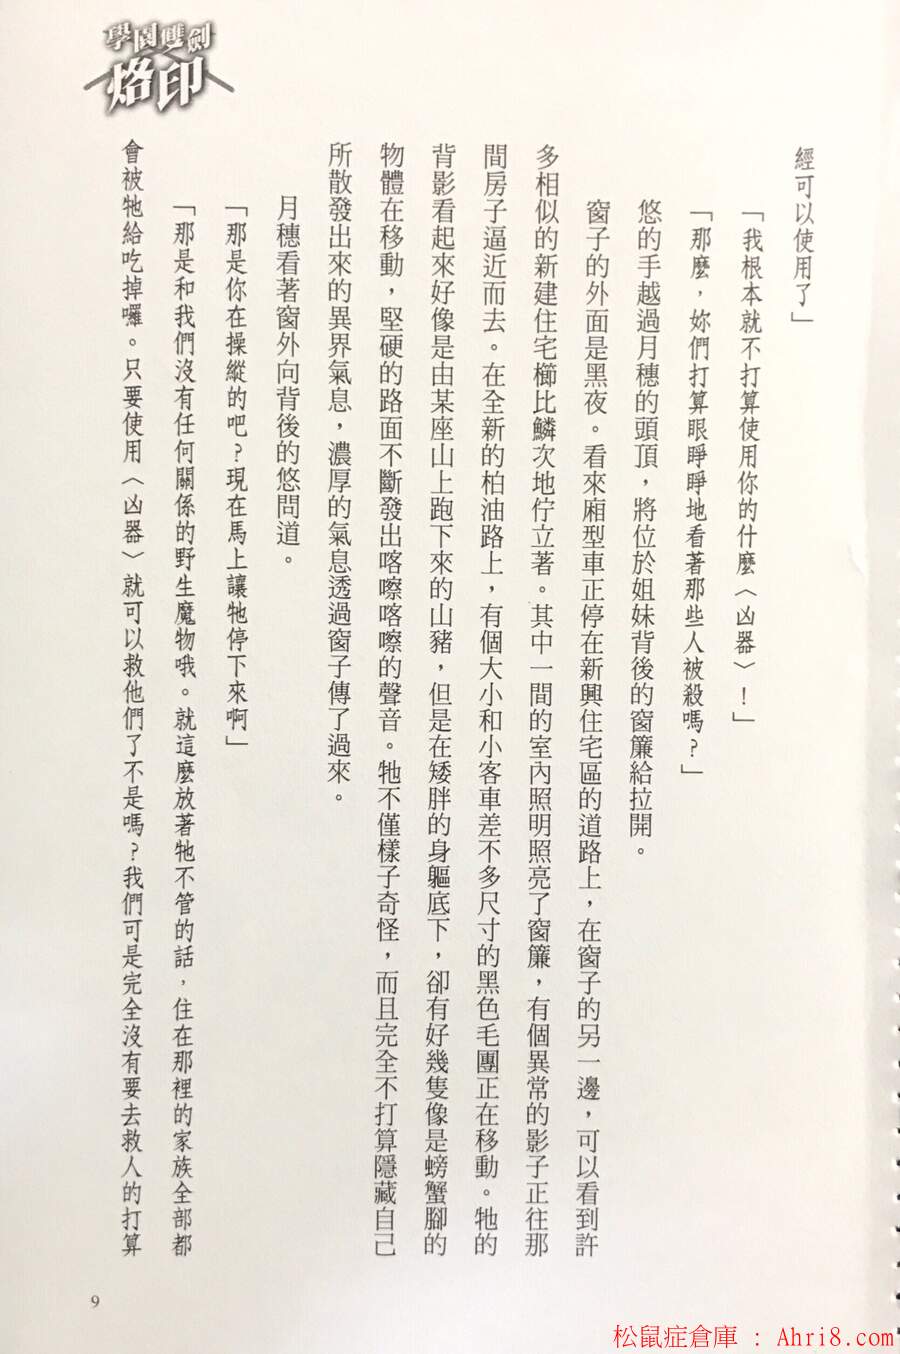 學園雙劍
烙印
經可以使用了」
「我根本就不打算使用你的什麼〈凶器〉！」
「那麼，妳們打算眼睜睜地看著那些人被殺嗎？」
悠的手越過月穗的頭頂，將位於姐妹背後的窗簾給拉開。
窗子的外面是黑夜。看來廂型車正停在新興住宅區的道路上，在窗子的另一邊，可以看到許
多相似的新建住宅櫛比鱗次地佇立著。其中一間的室內照明照亮了窗簾，有個異常的影子正往那
間房子逼近而去。在全新的柏油路上，有個大小和小客車差不多尺寸的黑色毛團正在移動。牠的
背影看起來好像是由某座山上跑下來的山豬，但是在矮胖的身軀底下，卻有好幾隻像是螃蟹腳的
物體在移動，堅硬的路面不斷發出喀嚓喀嚓的聲音。牠不僅樣子奇怪，而且完全不打算隱藏自己
所散發出來的異界氣息，濃厚的氣息透過窗子傳了過來。
月穗看著窗外向背後的悠問道。
「那是你在操縱的吧？現在馬上讓牠停下來啊」
「那是和我們沒有任何關係的野生魔物哦。就這麼放著牠不管的話，住在那裡的家族全部都
會被牠給吃掉囉。只要使用〈凶器〉就可以救他們了不是嗎？我們可是完全沒有要去救人的打算
9
松鼠症倉庫 : Ahri8.com